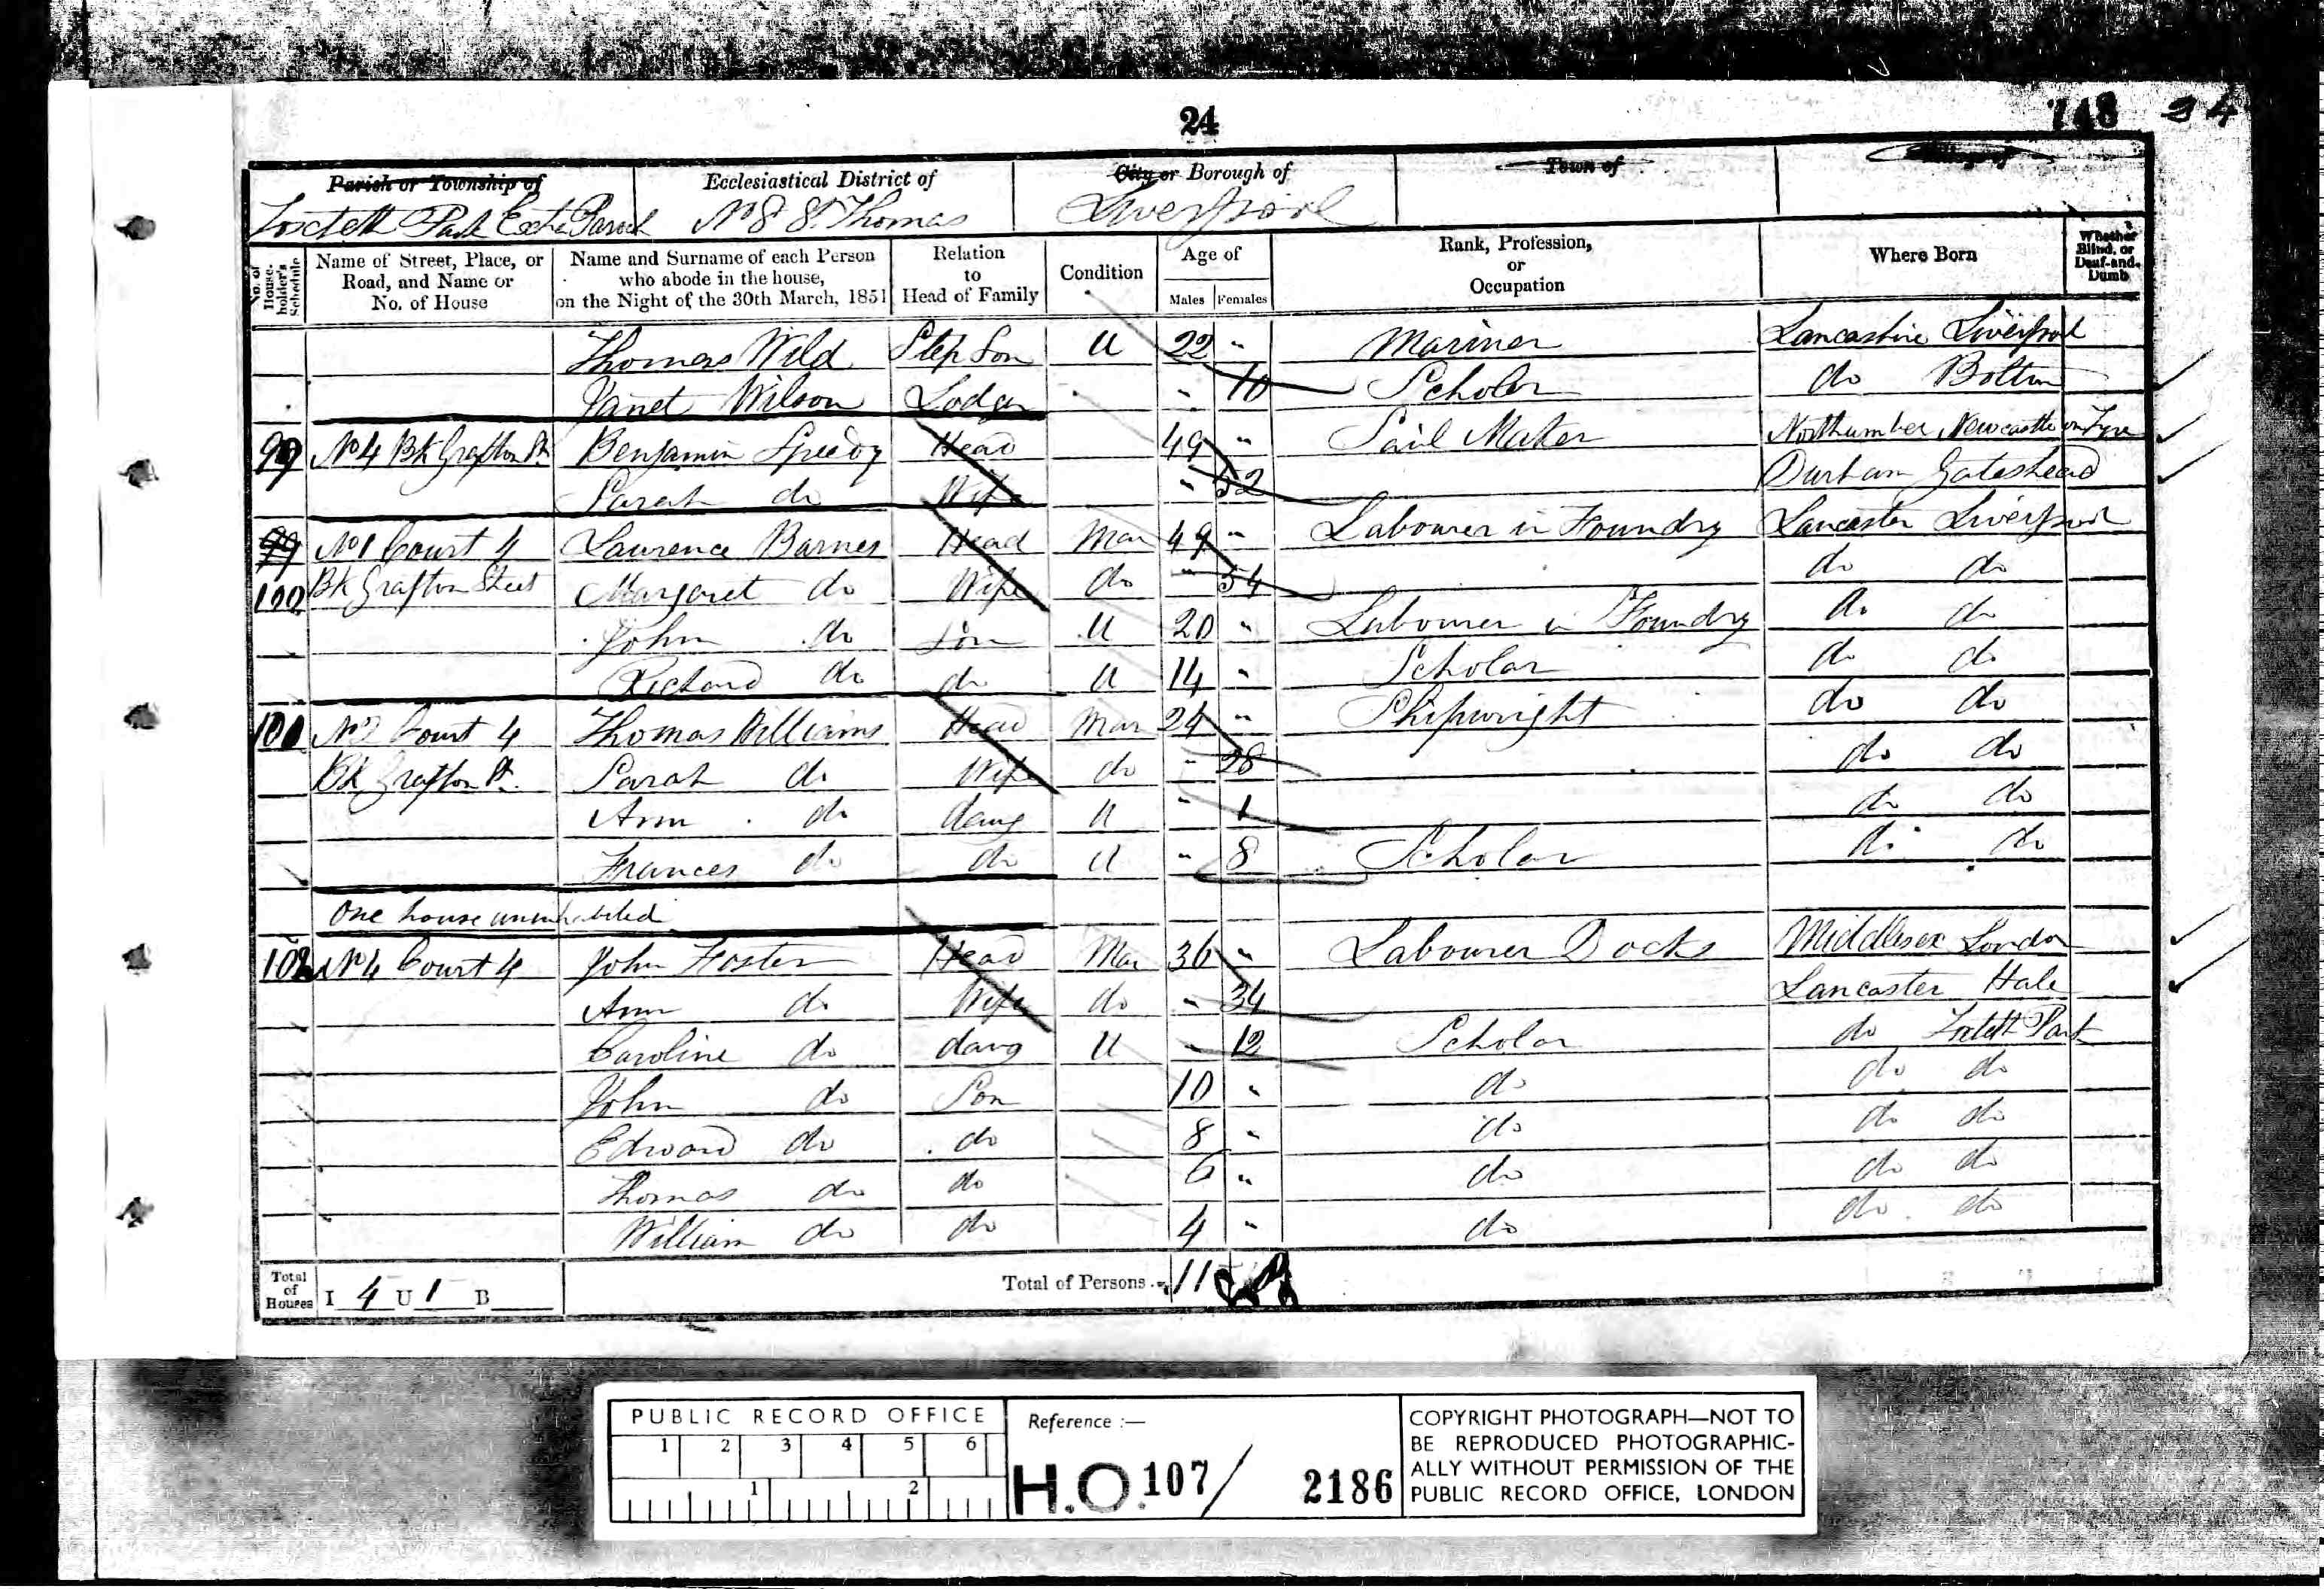 24
748 24
Parish or Township of Ecclesiastical District of City or Borough of Town of
Toxteth Park Extra Paroch No 8 St Thomas Liverpool
No. of House-holder's Schedule
Name of Street, Place, or Road, and Name or No. of House
Name and Surname of each Person who abode in the house, on the Night of the 30th March, 1851
Relation to Head of Family
Condition
Age of Males Females
Rank, Profession, or Occupation
Where Born
Whether Blind, or Deaf-and-Dumb
Thomas Wild Step Son U 22 " Mariner Lancashire Liverpool
Janet Wilson Lodger " 10 Scholar do Bolton
99 No 4 Bk Grafton St Benjamin Speedy Head 49 " Sail Maker Northumber Newcastle on Tyne
Sarah do Wife " 52 Durham Gateshead
99 No 1 Court 4 Laurence Barnes Head Mar 49 " Labourer in Foundry Lancaster Liverpool
100 Bk Grafton Street Margaret do Wife do " 54 do do
John do Son U 20 " Labourer in Foundry do do
Richard do do U 14 " Scholar do do
101 No 2 Court 4 Thomas Williams Head Mar 24 " Shipwright do do
Bk Grafton St Sarah do Wife do " 28 do do
Ann do daug U " 1 do do
Frances do do U " 8 Scholar do do
One house uninhabited
102 No 4 Court 4 John Foster Head Mar 36 " Labourer Docks Middlesex London
Ann do Wife do " 34 Lancaster Hale
Caroline do daug U " 12 Scholar do Toxteth Park
John do Son 10 " do do do
Edward do do 8 " do do do
Thomas do do 6 " do do do
William do do 4 " do do do
Total of Houses I 4 U 1 B Total of Persons 11
PUBLIC RECORD OFFICE
1 2 3 4 5 6
1 2
Reference :—
H.O. 107/ 2186
COPYRIGHT PHOTOGRAPH—NOT TO
BE REPRODUCED PHOTOGRAPHIC-
ALLY WITHOUT PERMISSION OF THE
PUBLIC RECORD OFFICE, LONDON